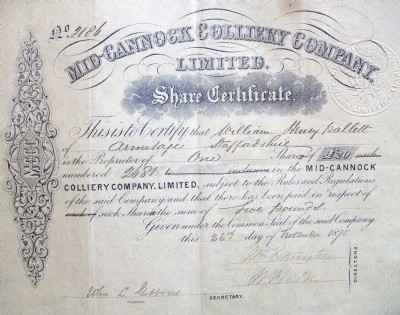 No. 2186
MID-CANNOCK COLLIERY COMPANY,
LIMITED.
Share Certificate.
This is to Certify that William Henry Hallett
of Armitage Staffordshire
is the Proprietor of One Share of £20 each
numbered 2681 to inclusive in the MID-CANNOCK
COLLIERY COMPANY, LIMITED, subject to the Rules and Regulations
of the said Company and that there has been paid in respect of
each of such Shares the sum of Two Pounds.
Given under the Common Seal of the said Company
this 26th day of November 187
DIRECTORS
John C
SECRETARY.
MCCC